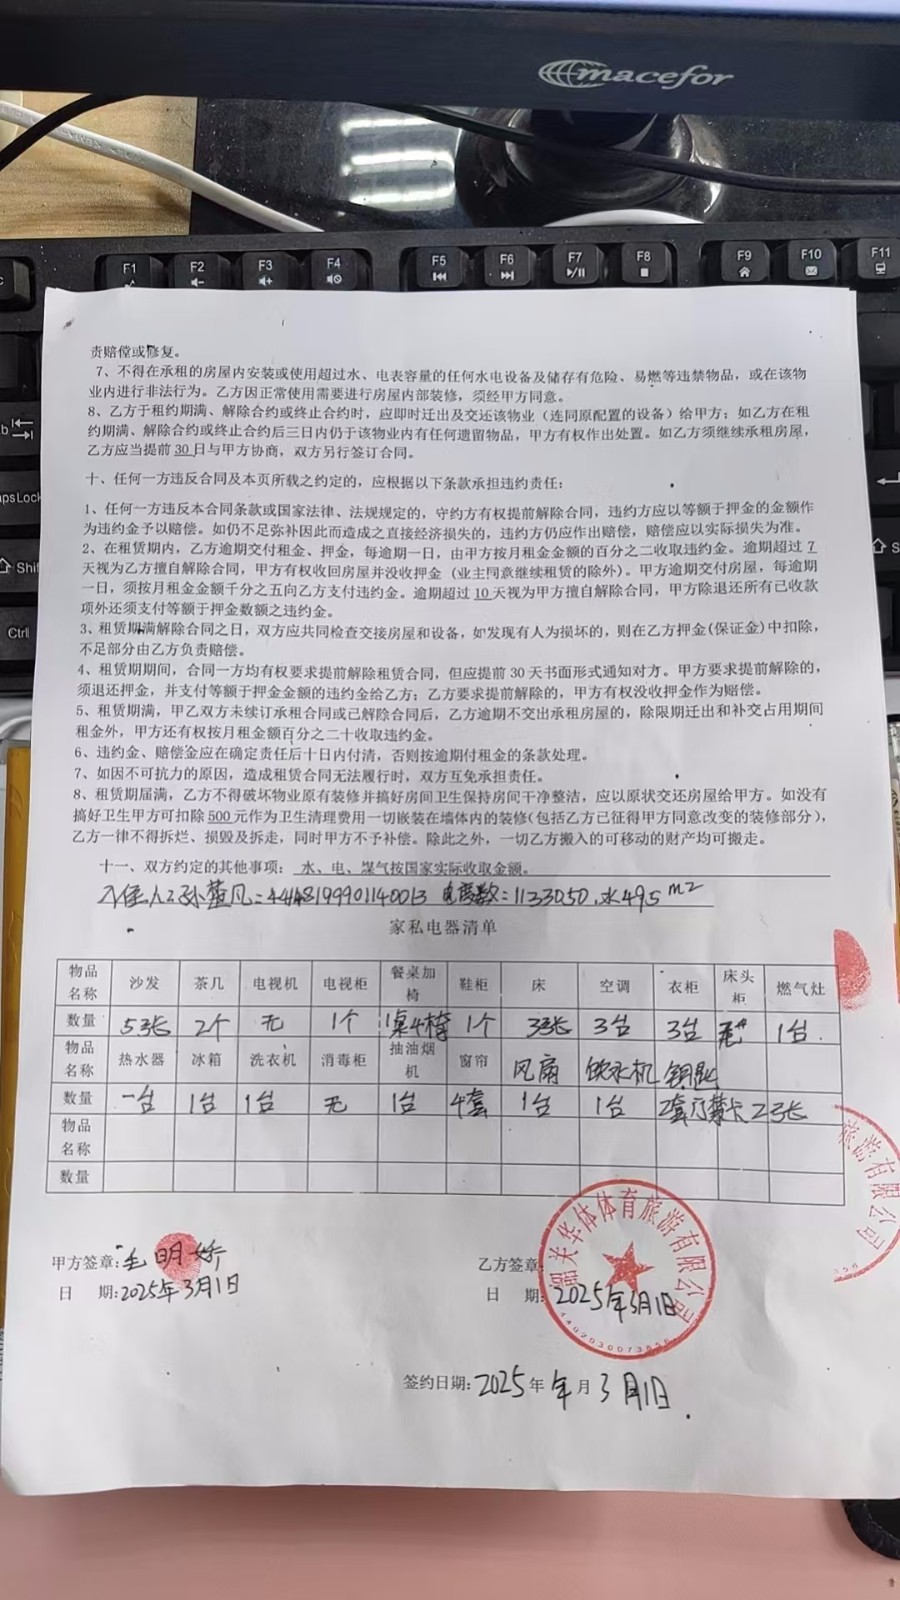 macefor
F1
F2
F3
F4
F5
F6
F7
F8
F9
F10
F11
责赔偿或修复。
7、不得在承租的房屋内安装或使用超过水、电表容量的任何水电设备及储存有危险、易燃等违禁物品，或在该物
业内进行非法行为。乙方因正常使用需要进行房屋内部装修，须经甲方同意。
8、乙方于租约期满、解除合约或终止合约时，应即时迁出及交还该物业（连同原配置的设备）给甲方；如乙方在租
约期满、解除合约或终止合约后三日内仍于该物业内有任何遗留物品，甲方有权作出处置。如乙方须继续承租房屋，
乙方应当提前30日与甲方协商，双方另行签订合同。
十、任何一方违反合同及本页所载之约定的，应根据以下条款承担违约责任：
1、任何一方违反本合同条款或国家法律、法规规定的，守约方有权提前解除合同，违约方应以等额于押金的金额作
为违约金予以赔偿。如仍不足弥补因此而造成之直接经济损失的，违约方仍应作出赔偿，赔偿应以实际损失为准。
2、在租赁期内，乙方逾期交付租金、押金，每逾期一日，由甲方按月租金金额的百分之二收取违约金。逾期超过7
天视为乙方擅自解除合同，甲方有权收回房屋并没收押金（业主同意继续租赁的除外）。甲方逾期交付房屋，每逾期
一日，须按月租金金额千分之五向乙方支付违约金。逾期超过10天视为甲方擅自解除合同，甲方除退还所有已收款
项外还须支付等额于押金数额之违约金。
3、租赁期满解除合同之日，双方应共同检查交接房屋和设备，如发现有人为损坏的，则在乙方押金(保证金)中扣除，
不足部分由乙方负责赔偿。
4、租赁期期间，合同一方均有权要求提前解除租赁合同，但应提前30天书面形式通知对方。甲方要求提前解除的，
须退还押金，并支付等额于押金金额的违约金给乙方；乙方要求提前解除的，甲方有权没收押金作为赔偿。
5、租赁期满，甲乙双方未续订承租合同或已解除合同后，乙方逾期不交出承租房屋的，除限期迁出和补交占用期间
租金外，甲方还有权按月租金额百分之二十收取违约金。
6、违约金、赔偿金应在确定责任后十日内付清，否则按逾期付租金的条款处理。
7、如因不可抗力的原因，造成租赁合同无法履行时，双方互免承担责任。
8、租赁期届满，乙方不得破坏物业原有装修并搞好房间卫生保持房间干净整洁，应以原状交还房屋给甲方。如没有
搞好卫生甲方可扣除500元作为卫生清理费用一切嵌装在墙体内的装修(包括乙方已征得甲方同意改变的装修部分)，
乙方一律不得拆烂、损毁及拆走，同时甲方不予补偿。除此之外，一切乙方搬入的可移动的财产均可搬走。
十一、双方约定的其他事项：水、电、煤气按国家实际收取金额。
电度数:1133050.水495m2
家私电器清单
物品名称 沙发 茶几 电视机 电视柜 餐桌加椅 鞋柜 床 空调 衣柜 床头柜 燃气灶
数量 5张 2个 无 1个 1桌4椅 1个 3张 3台 3台 1台
物品名称 热水器 冰箱 洗衣机 消毒柜 抽油烟机 窗帘 风扇 饮水机 钥匙
数量 一台 1台 1台 无 1台 4套 1台 1台 2套门禁卡2张
物品名称
数量
甲方签章: 乙方签章:
日 期:2025年3月1日 日 期:2025年3月1日
韶关华体体育旅游有限公司
旅游有限公司
签约日期:2025年 年月3月1日